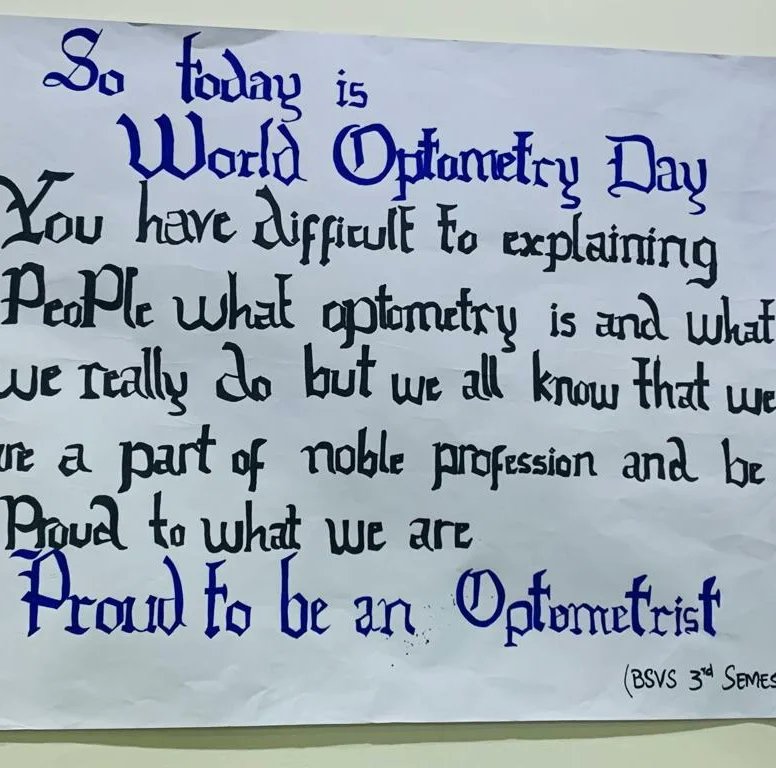 So today is
World Optometry Day
You have difficult to explaining
PeoPle what optometry is and what
we really do but we all know that we
are a part of noble profession and be
Proud to what we are
Proud to be an Optometrist
(BSVS 3rd SEMES